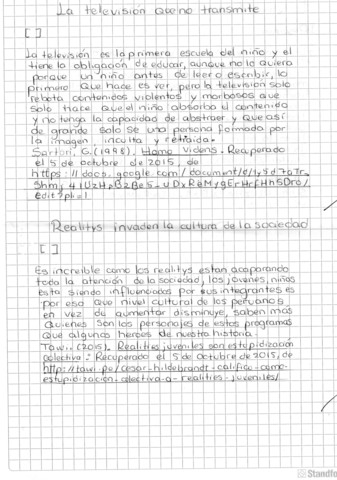 La televisión que no transmite
[ ]
La televisión es la primera escuela del niño y el
tiene la obligación de educar, aunque no lo quiera
porque un niño antes de leer o escribir, lo
primero que hace es ver, pero la televisión solo
rebota contenidos violentos y morbosos que
solo hace que el niño absorba el contenido
y no tenga la capacidad de abstraer y que así
de grande solo se una persona formado por
la imagen, inculta y retraida.
Sartori, G. (1998). Homo Videns. Recuperado
el 5 de octubre de 2015, de
https://docs.google.com/document/
edit?pli=1
Realitys invaden la cultura de la sociedad
[ ]
Es increible como los realitys estan acaparando
toda la atención de la sociedad, los jóvenes, niños
esta siendo influenciados por sus integrantes es
por eso que nivel cultural de los peruanos
en vez de aumentar disminuye, saben más
quienes son los personajes de estos programas
que algunos heroes de nuestra historia.
(2015). Realities juveniles son estupidización
colectiva. Recuperado el 5 de octubre de 2015, de
cesar-hildebrandt-califica-como-
estupidizacion-colectiva-a-realities-juveniles/
Standfo